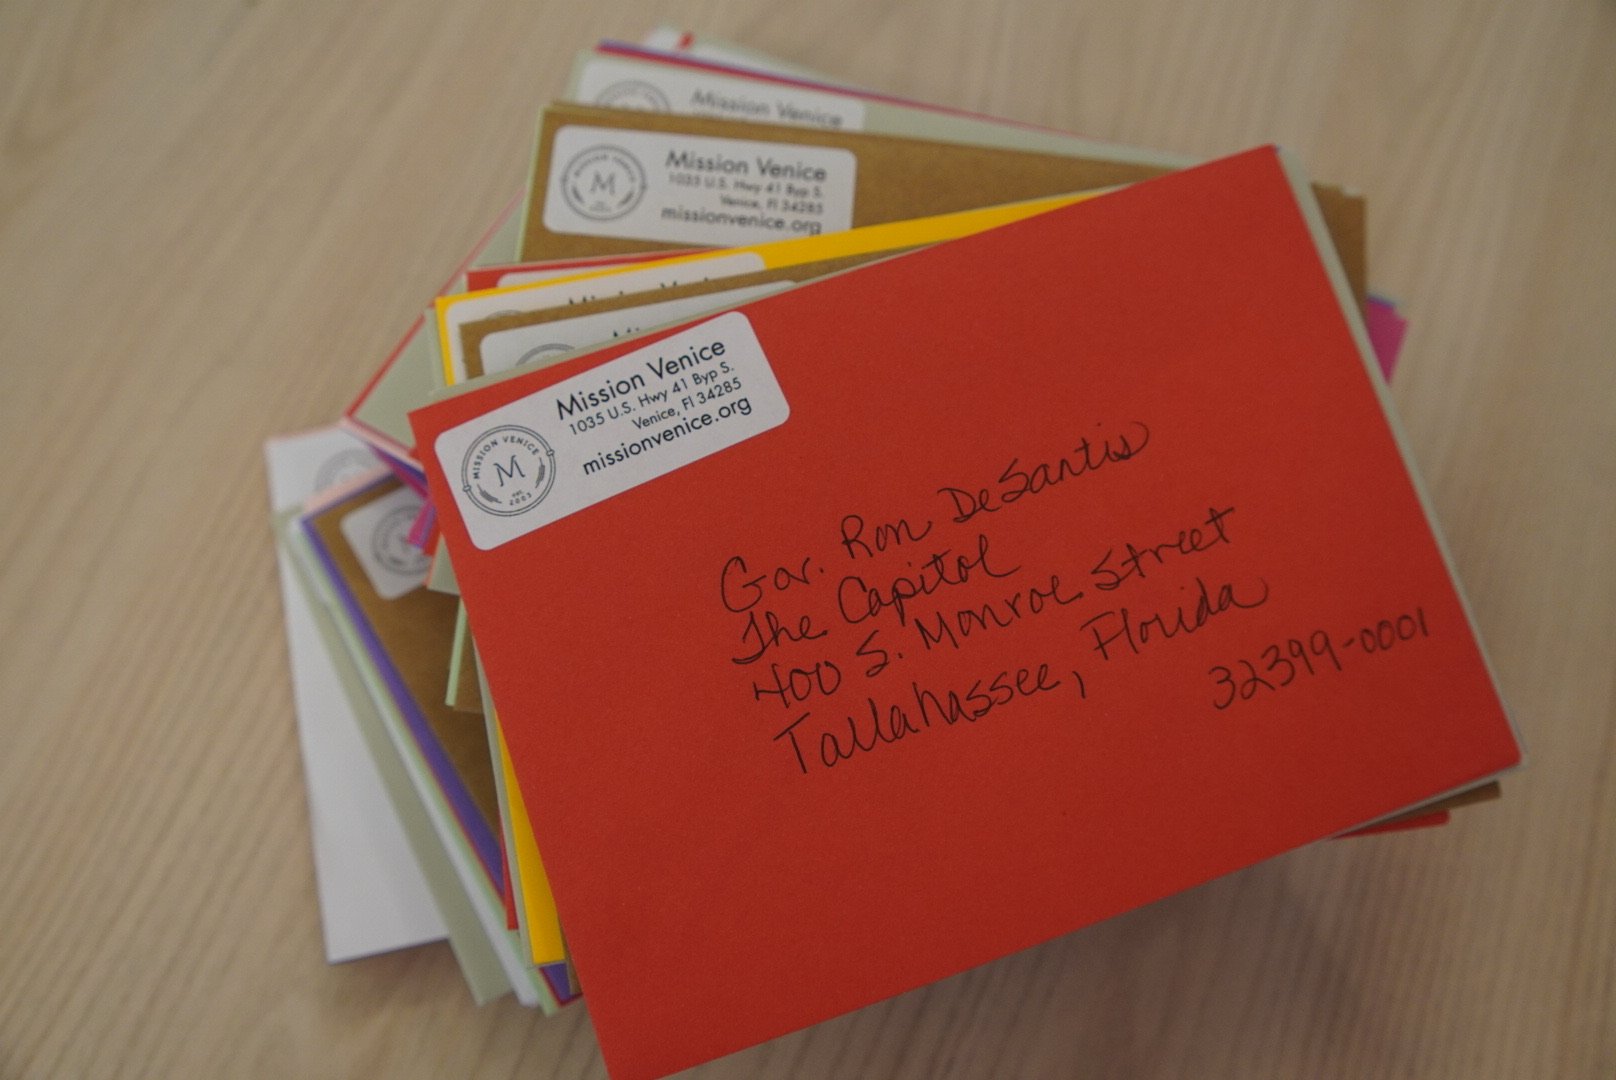 Mission Venice
Mission Venice
1035 U.S. Hwy 41 Byp S.
Venice, Fl 34285
missionvenice.org
MISSION VENICE
M
Mission Venice
1035 U.S. Hwy 41 Byp S.
Venice, Fl 34285
missionvenice.org
MISSION VENICE
M
EST.
2003
Gov. Ron DeSantis
The Capitol
400 S. Monroe Street
Tallahassee, Florida
32399-0001